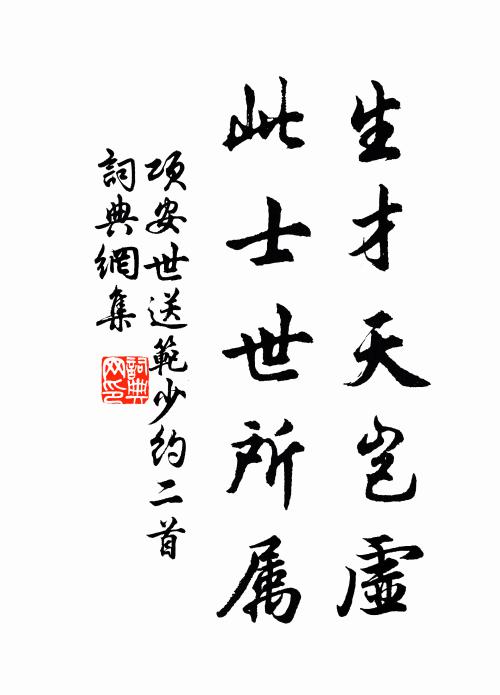 生才天岂虛
此士世所属
項安世送範少约二首
詞典網集
詞典网印